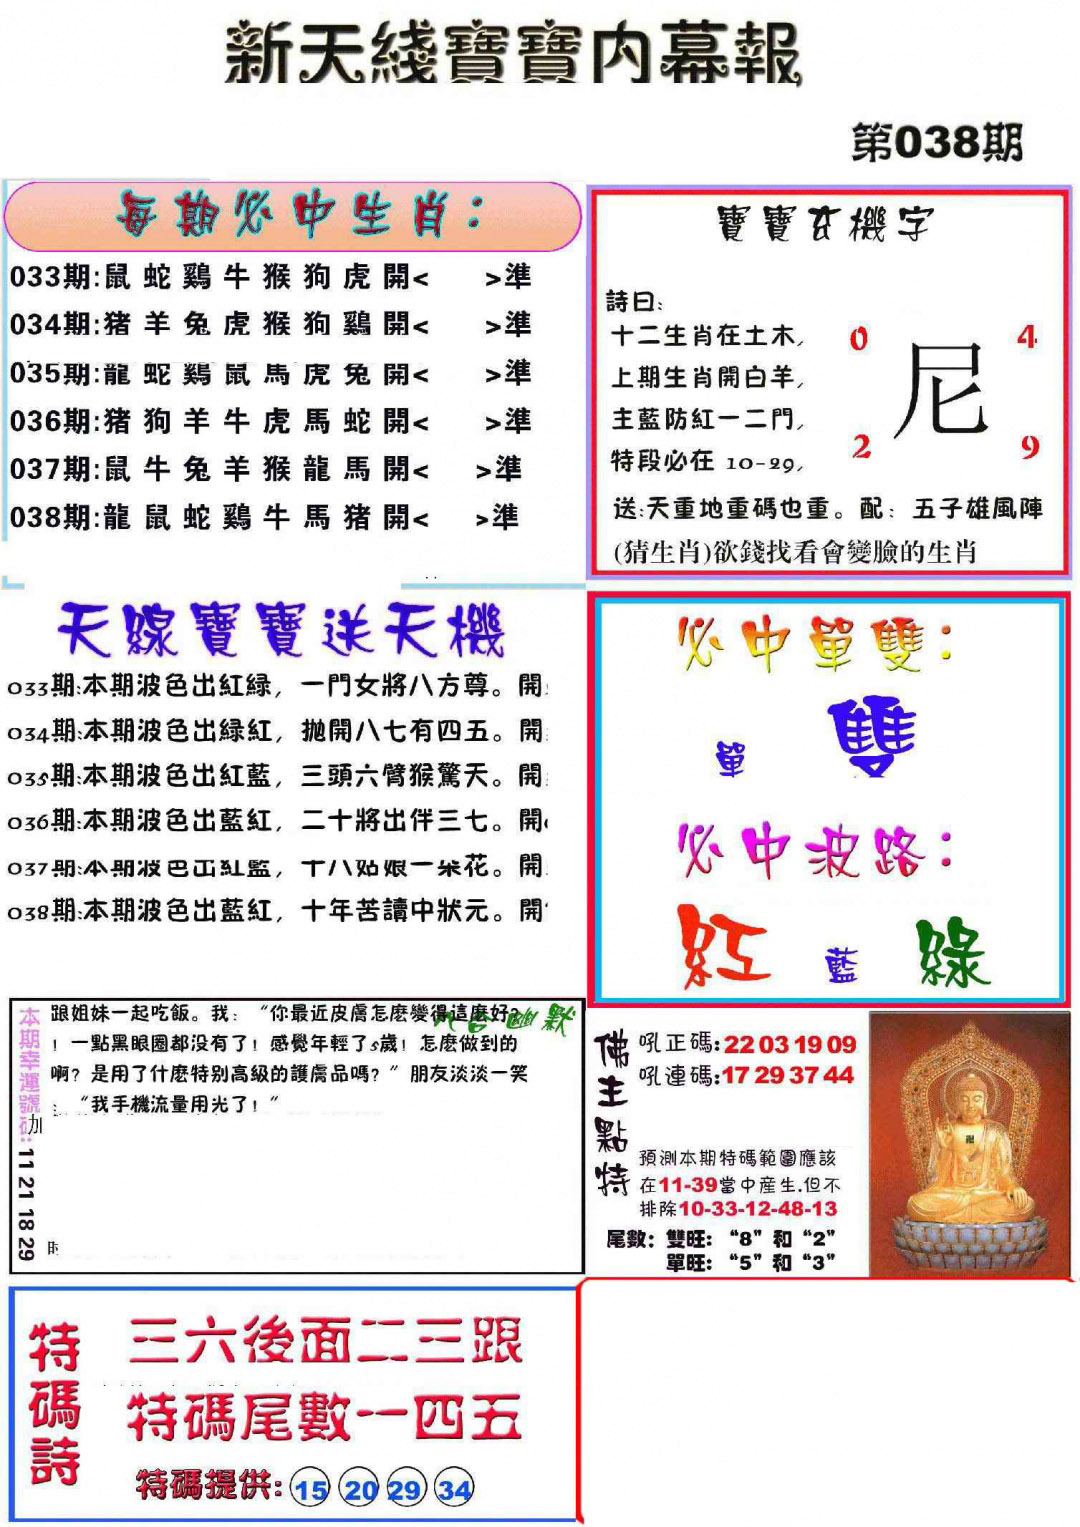 新天綫寶寶内幕報
第038期
每期必中生肖：
033期:鼠 蛇 鷄 牛 猴 狗 虎 開< >準
034期:猪 羊 兔 虎 猴 狗 鷄 開< >準
035期:龍 蛇 鷄 鼠 馬 虎 兔 開< >準
036期:猪 狗 羊 牛 虎 馬 蛇 開< >準
037期:鼠 牛 兔 羊 猴 龍 馬 開< >準
038期:龍 鼠 蛇 鷄 牛 馬 猪 開< >準
寶寶玄機字
詩曰:
十二生肖在土木,
上期生肖開白羊,
主藍防紅一二門,
特段必在 10-29,
0 4
尼
2 9
送:天重地重碼也重。配：五子雄風陣
(猜生肖)欲錢找看會變臉的生肖
天線寶寶送天機
033期:本期波色出紅緑，一門女將八方尊。開
034期:本期波色出緑紅，抛開八七有四五。開
035期:本期波色出紅藍，三頭六臂猴驚天。開
036期:本期波色出藍紅，二十將出伴三七。開
037期:本期波色出紅藍，十八姑娘一朵花。開
038期:本期波色出藍紅，十年苦讀中狀元。開
必中單雙：
單 雙
必中波路：
紅 藍 綠
本期幸運號碼: 11 21 18 29
幽默
跟姐妹一起吃飯。我：“你最近皮膚怎麽變得這麽好?
！一點黑眼圈都没有了！感覺年輕了5歲！怎麽做到的
啊？是用了什麽特别高級的護膚品嗎？”朋友淡淡一笑
：“我手機流量用光了！“
加
佛主點特
吼正碼:22 03 19 09
吼連碼:17 29 37 44
預測本期特碼範圍應該
在11-39當中産生.但不
排除10-33-12-48-13
尾數：雙旺：“8”和“2”
單旺：“5”和“3”
特碼詩
三六後面二三跟
特碼尾數一四五
特碼提供: 15 20 29 34